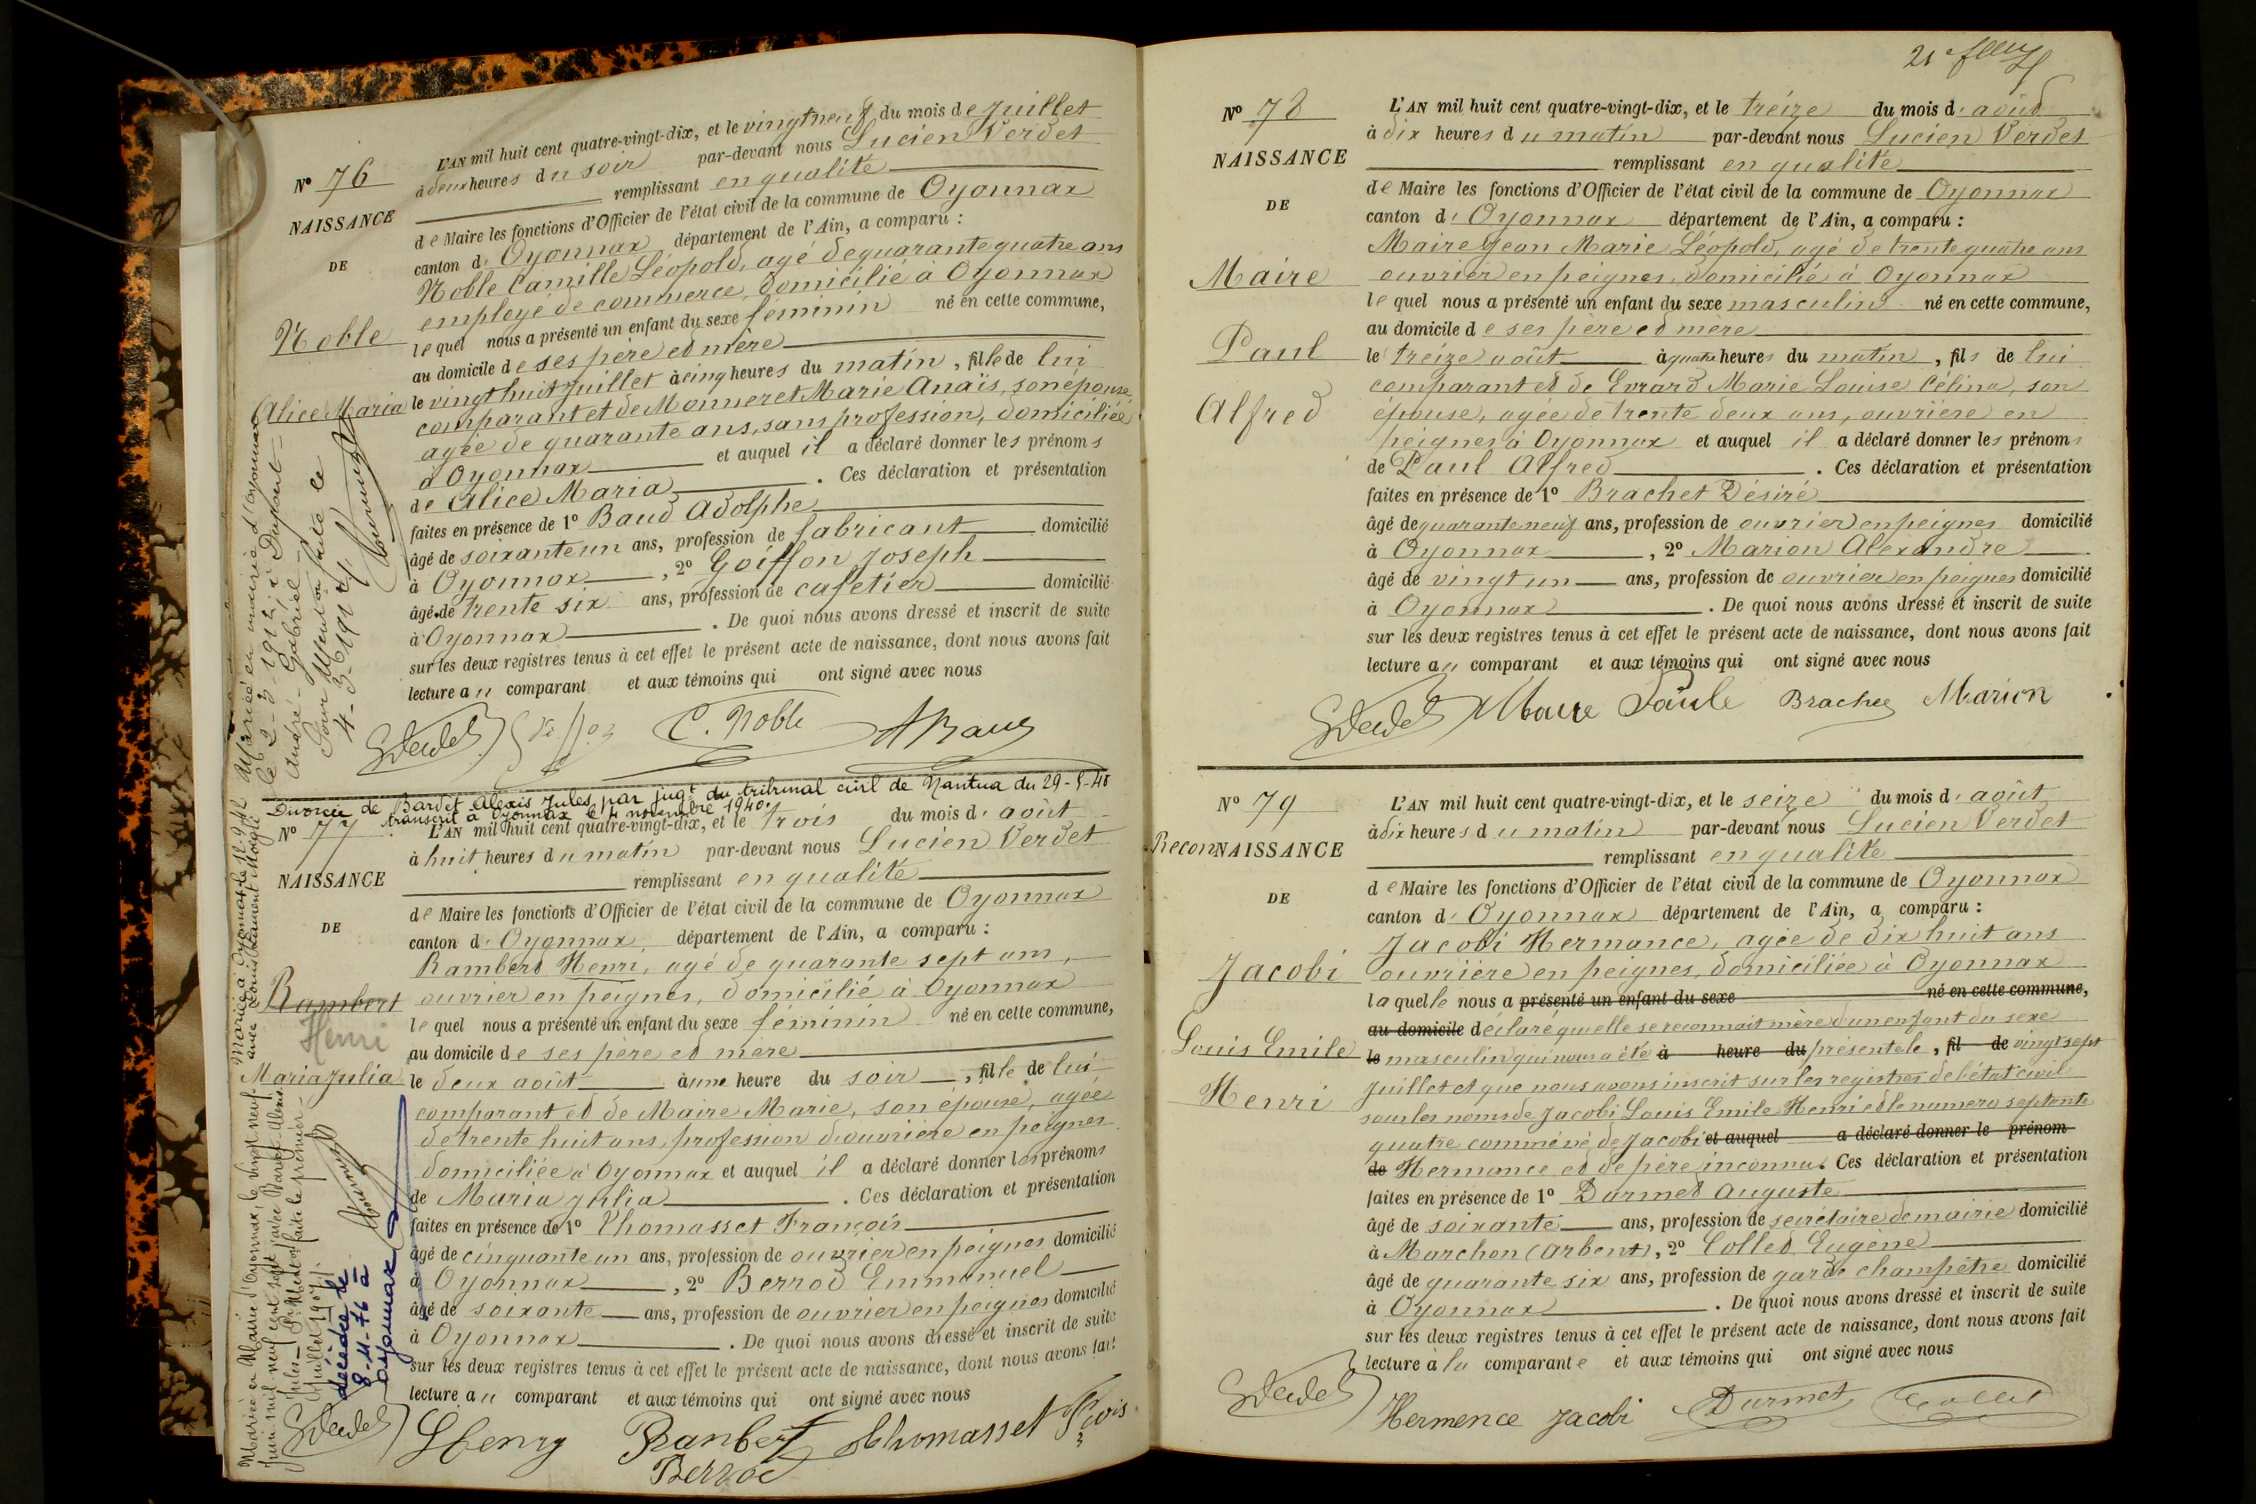 L'AN mil huit cent quatre-vingt-dix, et le vingt neuf du mois de Juillet
à deux heures du soir par-devant nous Lucien Verdet
remplissant en qualité
de Maire les fonctions d'Officier de l'état civil de la commune de Oyonnax
canton d' Oyonnax département de l'Ain, a comparu :
Noble Camille Léopold, agé de quarante quatre ans
employé de commerce, domicilié à Oyonnax
lequel nous a présenté un enfant du sexe féminin né en cette commune,
au domicile de ses père et mère
le vingt huit Juillet à cinq heures du matin, fille de lui
comparant et de Monneret Marie Anaïs, son épouse
agée de quarante ans, sans profession, domiciliée
à Oyonnax et auquel il a déclaré donner les prénoms
de Alice Maria . Ces déclaration et présentation
faites en présence de 1º Baud Adolphe
âgé de soixante un ans, profession de fabricant domicilié
à Oyonnax , 2º Goiffon Joseph
âgé de trente six ans, profession de cafetier domicilié
à Oyonnax . De quoi nous avons dressé et inscrit de suite
sur les deux registres tenus à cet effet le présent acte de naissance, dont nous avons fait
lecture au comparant et aux témoins qui ont signé avec nous
Nº 76
NAISSANCE
DE
Noble
Alice Maria
Mariée en mairie d'Oyonnax
le 2-3-1912, à Dupont
André-Gabriel
Pour Mention faite le
4-3-1912
C. Noble A Baud
Divorcée de Bardet Alexis Jules par jugt du tribunal civil de Nantua du 29-5-40
transcrit à Oyonnax le 4 novembre 1940.
Nº 77
NAISSANCE
DE
Rambert
Henri
Maria Julia
L'AN mil huit cent quatre-vingt-dix, et le trois du mois d' août
à huit heures du matin par-devant nous Lucien Verdet
remplissant en qualité
de Maire les fonctions d'Officier de l'état civil de la commune de Oyonnax
canton d' Oyonnax département de l'Ain, a comparu :
Rambert Henri, agé de quarante sept ans,
ouvrier en peignes, domicilié à Oyonnax
lequel nous a présenté un enfant du sexe féminin né en cette commune,
au domicile de ses père et mère
le deux août à une heure du soir , fille de lui
comparant et de Maire Marie, son épouse, agée
de trente huit ans, profession d'ouvrière en peignes
domiciliée à Oyonnax et auquel il a déclaré donner les prénoms
de Maria Julia . Ces déclaration et présentation
faites en présence de 1º Thomasset François
âgé de cinquante un ans, profession de ouvrier en peignes domicilié
à Oyonnax , 2º Berrod Emmanuel
âgé de soixante ans, profession de ouvrier en peignes domicilié
à Oyonnax . De quoi nous avons dressé et inscrit de suite
sur les deux registres tenus à cet effet le présent acte de naissance, dont nous avons fait
lecture au comparant et aux témoins qui ont signé avec nous
Mariée en Mairie d'Oyonnax, le vingt neuf
Juin mil neuf cent sept, avec Bardet Alexis
Jules - Pr Mention faite le premier
Juillet 1907.
Mariée à Oyonnax le
avec
décédée le
8-11-76 à
Oyonnax
Henry Rambert Thomasset Fcois
Berrod
21e feuil
Nº 78
NAISSANCE
DE
Maire
Paul
Alfred
L'AN mil huit cent quatre-vingt-dix, et le treize du mois d' août
à dix heures du matin par-devant nous Lucien Verdet
remplissant en qualité
de Maire les fonctions d'Officier de l'état civil de la commune de Oyonnax
canton d' Oyonnax département de l'Ain, a comparu :
Maire Jean Marie Léopold, agé de trente quatre ans
ouvrier en peignes, domicilié à Oyonnax
lequel nous a présenté un enfant du sexe masculin né en cette commune,
au domicile de ses père et mère
le treize août à quatre heures du matin , fils de lui
comparant et de Evrard Marie Louise Célina, son
épouse, agée de trente deux ans, ouvrière en
peignes à Oyonnax et auquel il a déclaré donner les prénoms
de Paul Alfred . Ces déclaration et présentation
faites en présence de 1º Brachet Désiré
âgé de quarante neuf ans, profession de ouvrier en peignes domicilié
à Oyonnax , 2º Marion Alexandre
âgé de vingt un ans, profession de ouvrier en peignes domicilié
à Oyonnax . De quoi nous avons dressé et inscrit de suite
sur les deux registres tenus à cet effet le présent acte de naissance, dont nous avons fait
lecture au comparant et aux témoins qui ont signé avec nous
Maire Brachet Marion
Nº 79
ReconNAISSANCE
DE
Jacobi
Louis Emile
Henri
L'AN mil huit cent quatre-vingt-dix, et le seize du mois d' août
à dix heures du matin par-devant nous Lucien Verdet
remplissant en qualité
de Maire les fonctions d'Officier de l'état civil de la commune de Oyonnax
canton d' Oyonnax département de l'Ain, a comparu :
Jacobi Hermance, agée de dix huit ans
ouvrière en peignes, domiciliée à Oyonnax
laquelle nous a présenté un enfant du sexe né en cette commune,
au domicile déclaré qu'elle se reconnait mère d'un enfant du sexe
le masculin qui nous a été à heure du présenté le , fil de vingt sept
Juillet et que nous avons inscrit sur les registres de l'état civil
sous les noms de Jacobi Louis Emile Henri et le numéro septante
quatre comme né de Jacobi et auquel a déclaré donner le prénom
de Hermance et de père inconnu. Ces déclaration et présentation
faites en présence de 1º Darmet Auguste
âgé de soixante ans, profession de secrétaire de mairie domicilié
à Marchon (Arbent), 2º Collet Eugène
âgé de quarante six ans, profession de garde champêtre domicilié
à Oyonnax . De quoi nous avons dressé et inscrit de suite
sur les deux registres tenus à cet effet le présent acte de naissance, dont nous avons fait
lecture à la comparante et aux témoins qui ont signé avec nous
Hermence Jacobi Darmet Collet